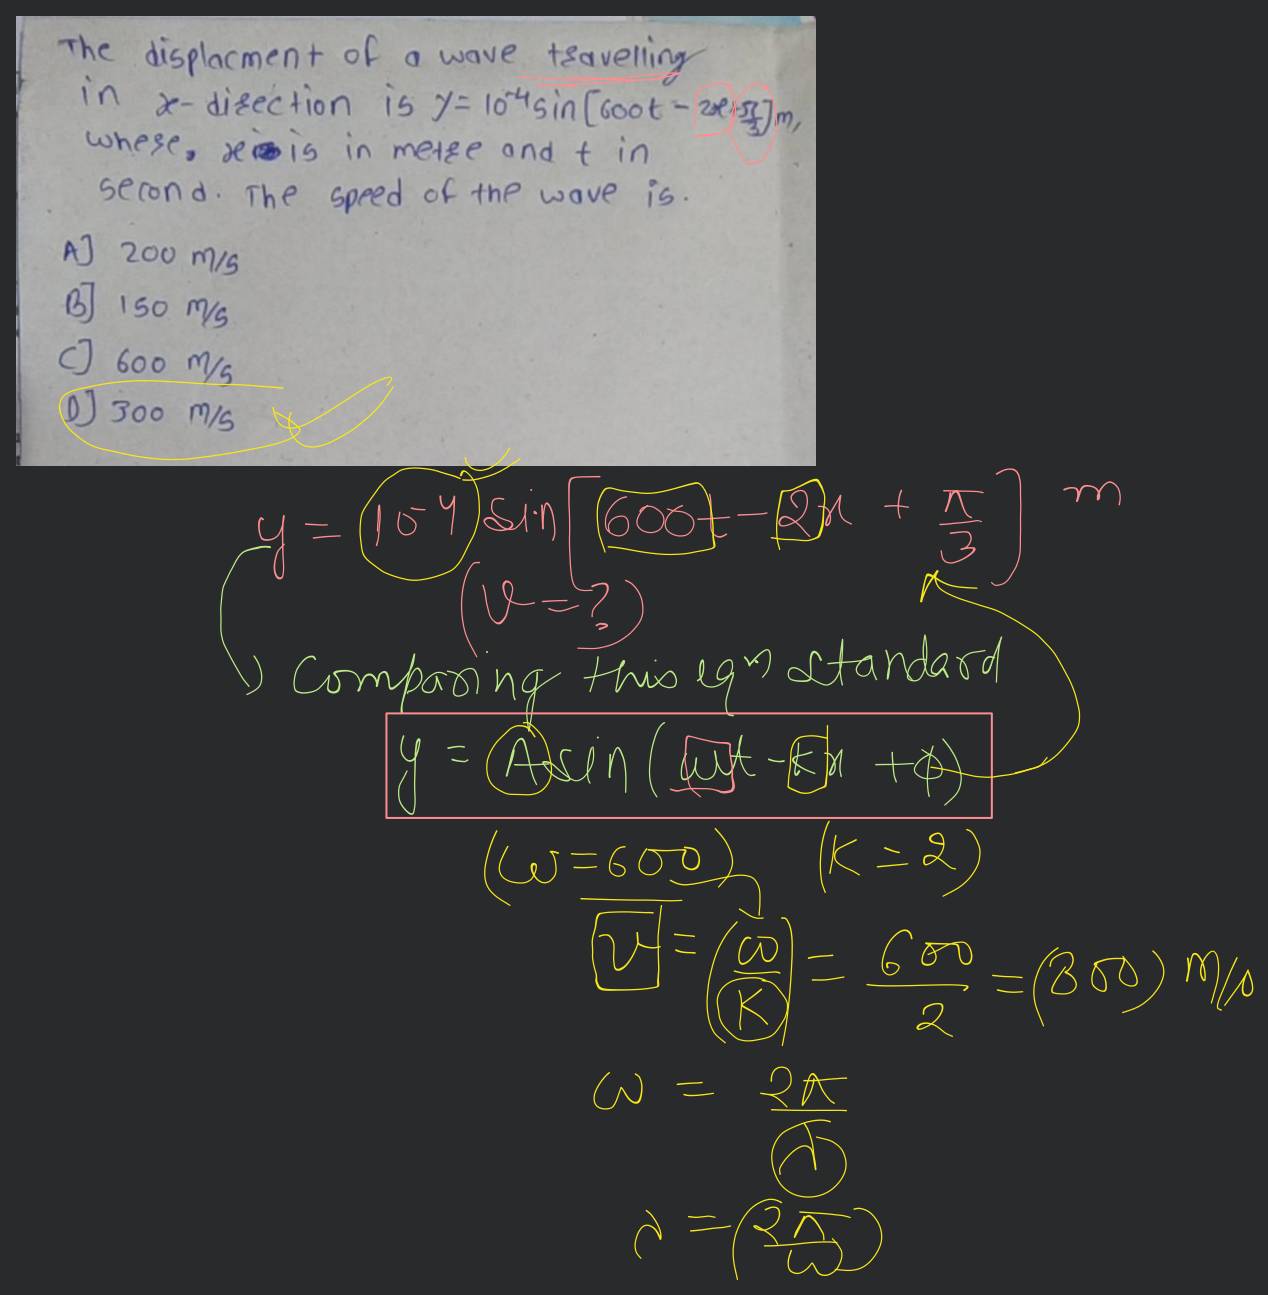 The displacment of a wave travelling
in x-direction is y = 10⁻⁴ sin [600t - 2x + π/3] m,
where, x is in metre and t in
second. The speed of the wave is.
A] 200 m/s
B] 150 m/s
C] 600 m/s
D] 300 m/s
y = 10⁻⁴ sin [600t - 2x + π/3] m
(v = ?)
Comparing this eqn standard
y = A sin (ωt - kx + φ)
(ω = 600) (K = 2)
v = (ω/K) = 600/2 = (300) m/s
ω = 2π/λ
λ = (2π/ω)